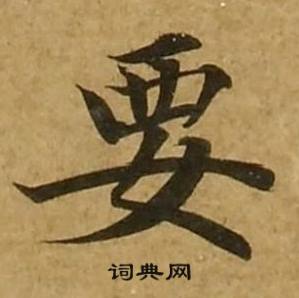 要
词典网